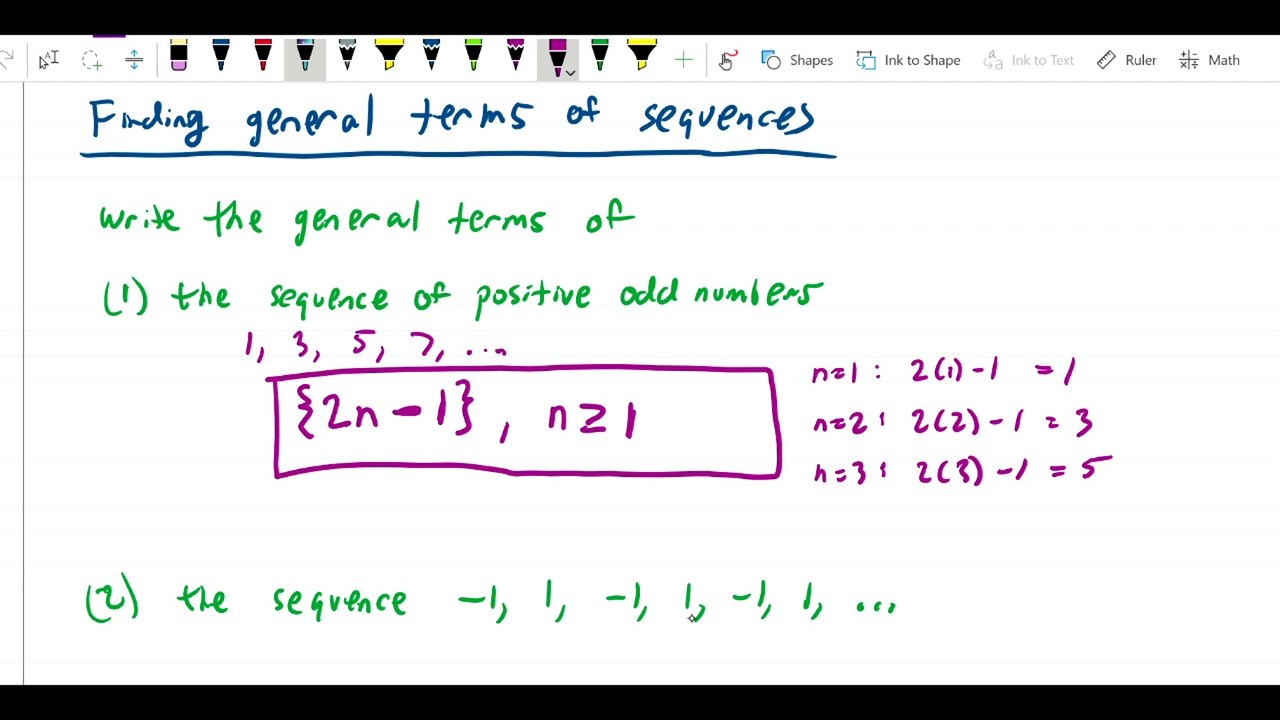 Shapes Ink to Shape Ink to Text Ruler Math
Finding general terms of sequences
write the general terms of
(1) the sequence of positive odd numbers
1, 3, 5, 7, ...
{2n-1}, n≥1
n=1 : 2(1)-1 = 1
n=2 : 2(2)-1 = 3
n=3 : 2(3)-1 = 5
(2) the sequence -1, 1, -1, 1, -1, 1, ...